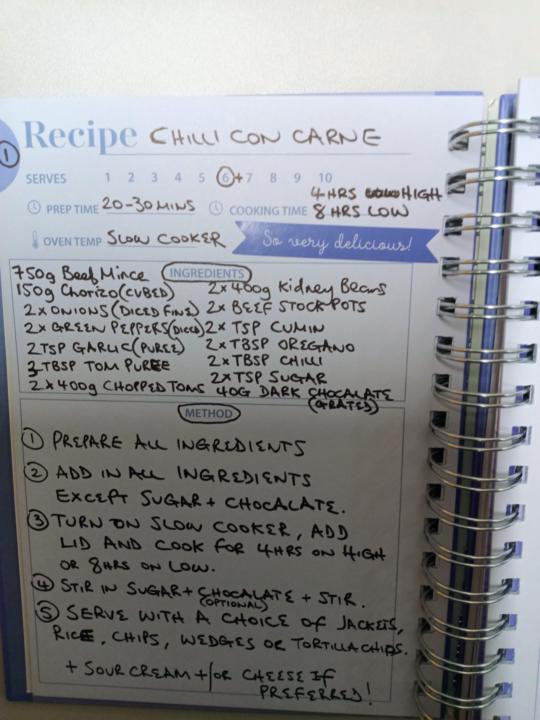 1
Recipe CHILLI CON CARNE
SERVES 1 2 3 4 5 6+ 7 8 9 10
4HRS HIGH
PREP TIME 20-30MINS COOKING TIME 8HRS LOW
OVEN TEMP SLOW COOKER So very delicious!
INGREDIENTS
750g Beef Mince
150g Chorizo (CUBED)
2x ONIONS (DICED FINE)
2x GREEN PEPPERS (Diced)
2TSP GARLIC (PUREE)
TBSP TOM PUREE
2x400g CHOPPED TOMS
2x400g Kidney Beans
2x BEEF STOCK POTS
2x TSP CUMIN
2xTBSP OREGANO
2xTBSP CHILLI
2xTSP SUGAR
40G DARK CHOCALATE
(GRATED)
METHOD
1 PREPARE ALL INGREDIENTS
2 ADD IN ALL INGREDIENTS
EXCEPT SUGAR + CHOCALATE.
3 TURN ON SLOW COOKER, ADD
LID AND COOK FOR 4HRS ON HIGH
OR 8HRS ON LOW.
4 STIR IN SUGAR + CHOCALATE + STIR.
(OPTIONAL)
5 SERVE WITH A CHOICE OF JACKETS,
RICE, CHIPS, WEDGES OR TORTILLA CHIPS.
+ SOUR CREAM +/OR CHEESE IF
PREFERRED!